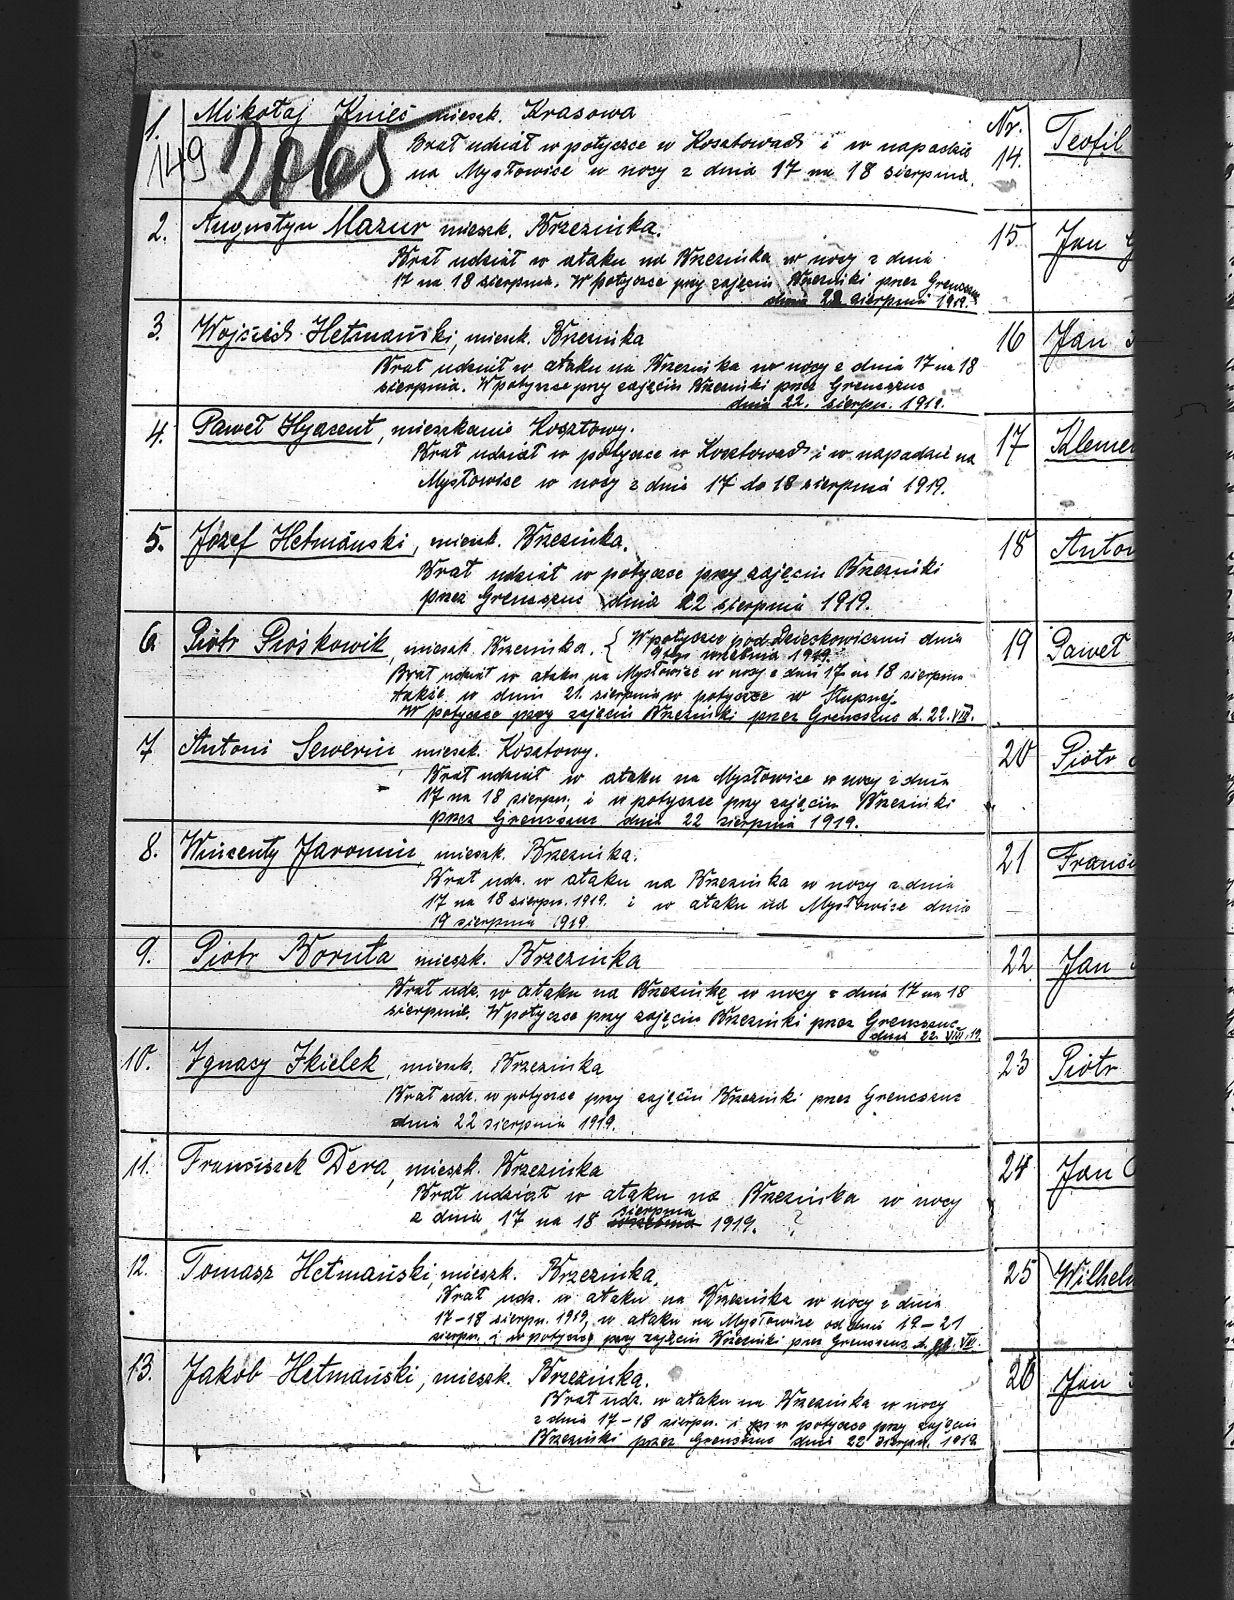 1. Mikołaj Knieć mieszk. Krasowa
149 2065
Brał udział w potyczce w Kosztowach i w napadzie
na Mysłowice w nocy z dnia 17 na 18 sierpnia.
2. Augustyn Mazur mieszk. Brzezinka.
Brał udział w ataku na Brzezinka w nocy z dnia
17 na 18 sierpnia. W potyczce przy zajęciu Brzezinki przez Grenszuc
dnia 22 sierpnia 1919.
3. Wojciech Hetmański, mieszk. Brzezinka
Brał udział w ataku na Brzezinka w nocy z dnia 17 na 18
sierpnia. W potyczce przy zajęciu Brzezinki przez Grenszuc
dnia 22. sierpn. 1919.
4. Paweł Hyacent, mieszkanie Kosztowy.
Brał udział w potyczce w Kosztowach i w napadzie na
Mysłowice w nocy z dnia 17 do 18 sierpnia 1919.
5. Józef Hetmański, mieszk. Brzezinka.
Brał udział w potyczce przy zajęciu Brzezinki
przez Grenszuc dnia 22 sierpnia 1919.
6 Piotr Proskowik, mieszk. Brzezinka. { W potyczce pod Dzieckowicami dnia
września 1919.
Brał udział w ataku na Mysłowice w nocy z dnia 17 na 18 sierpnia
także w dniu 21. sierpnia w potyczce w Kupnej.
W potyczce przy zajęciu Brzezinki przez Grenszuc d. 22. VIII.
7 Antoni Sewerin mieszk. Kosztowy.
Brał udział w ataku na Mysłowice w nocy z dnia
17 na 18 sierpn. i w potyczce przy zajęciu Brzezinki
przez Grenszuc dnia 22 sierpnia 1919.
8. Wincenty Jaromin, mieszk. Brzezinka.
Brał udz. w ataku na Brzezinka w nocy z dnia
17 na 18 sierpn. 1919. i w ataku na Mysłowice dnia
19 sierpnia 1919.
9. Piotr Boruta mieszk. Brzezinka
Brał udz. w ataku na Brzezinkę w nocy z dnia 17 na 18
sierpnia. W potyczce przy zajęciu Brzezinki przez Grenszuc
dnia 22. VIII. 19.
10. Ignacy Zkielek, mieszk. Brzezinka
Brał udz. w potyczce przy zajęciu Brzezinki przez Grenszuc
dnia 22 sierpnia 1919.
11. Franciszek Dera, mieszk. Brzezinka
Brał udział w ataku na Brzezinka w nocy
sierpnia
z dnia 17 na 18 września 1919. ?
12. Tomasz Hetmański, mieszk. Brzezinka.
Brał udz. w ataku na Brzezinka w nocy z dnia
17-18 sierpn. 1919, w ataku na Mysłowice od dnia 19-21
sierpn. i w potyczce przy zajęciu Brzezinki przez Grenszuc d. 22. VIII.
13. Jakób Hetmański, mieszk. Brzezinka.
Brał udz. w ataku na Brzezinka w nocy
z dnia 17-18 sierpn. i w potyczce przy zajęciu
Brzezinki przez Grenszuc dnia 22 sierpn. 1919
Nr.
14. Teofil
15 Jan
16 Jan
17 Klemen
18 Anton
19 Paweł
20 Piotr
21 Franci
22 Jan
23 Piotr
24 Jan
25 Wilhelm
26 Jan